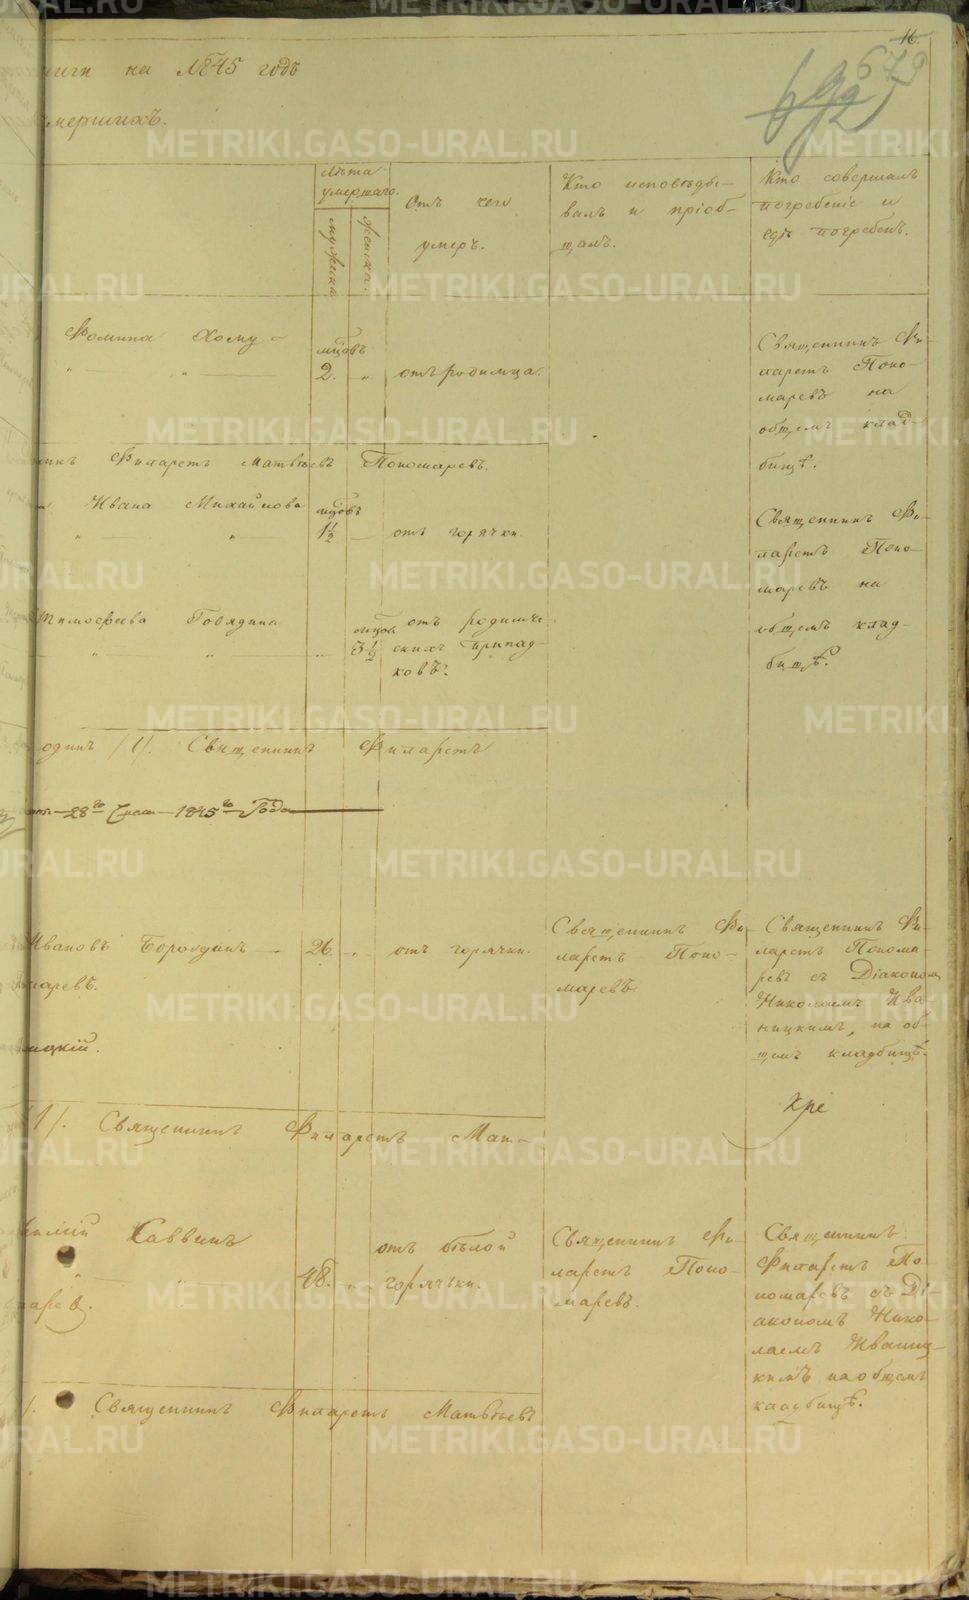 16.
679
692
ниги на 1845 годъ
мершихъ.
Лѣта умершаго.
мужска
женска.
Отъ чего умеръ.
Кто исповѣды-
валъ и пріоб-
щалъ.
Кто совершалъ
погребеніе и
гдѣ погребенъ.
Фомина Хому-
мцовъ
2. „ отъ родимца.
Священникъ Фи-
ларетъ Поно-
маревъ на
общемъ клад-
бищѣ.
никъ Филаретъ Матвѣевъ Пономаревъ.
Ивана Михайлова
мцовъ
1½ — отъ горячки.
Священникъ Фи-
ларетъ Поно-
маревъ на
общемъ клад-
бищѣ.
Тимофеева Говядина
мцов
3½
отъ родимче-
скихъ припад-
ковъ.
одинъ /1/. Священникъ Филаретъ
28го 1845го Года
Ивановъ Бороздинъ — 26. „ отъ горячки.
маревъ.
ницкій.
Священникъ Фи-
ларетъ Поно-
маревъ
Священникъ Фи-
ларетъ Понома-
ревъ съ Діакономъ
Николаемъ Ива-
ницкимъ, на об-
щемъ кладбищѣ.
/1/. Священникъ Филаретъ Мат-
Саввинъ
48. „
отъ бѣлой
горячки.
марев.
Священникъ Фи-
ларетъ Поно-
маревъ.
Священникъ
Филаретъ По-
номаревъ съ Ді-
акономъ Нико-
лаемъ Иваниц-
кимъ на общемъ
кладбищѣ.
/. Священникъ Филаретъ Матвѣевъ
METRIKI.GASO-URAL.RU